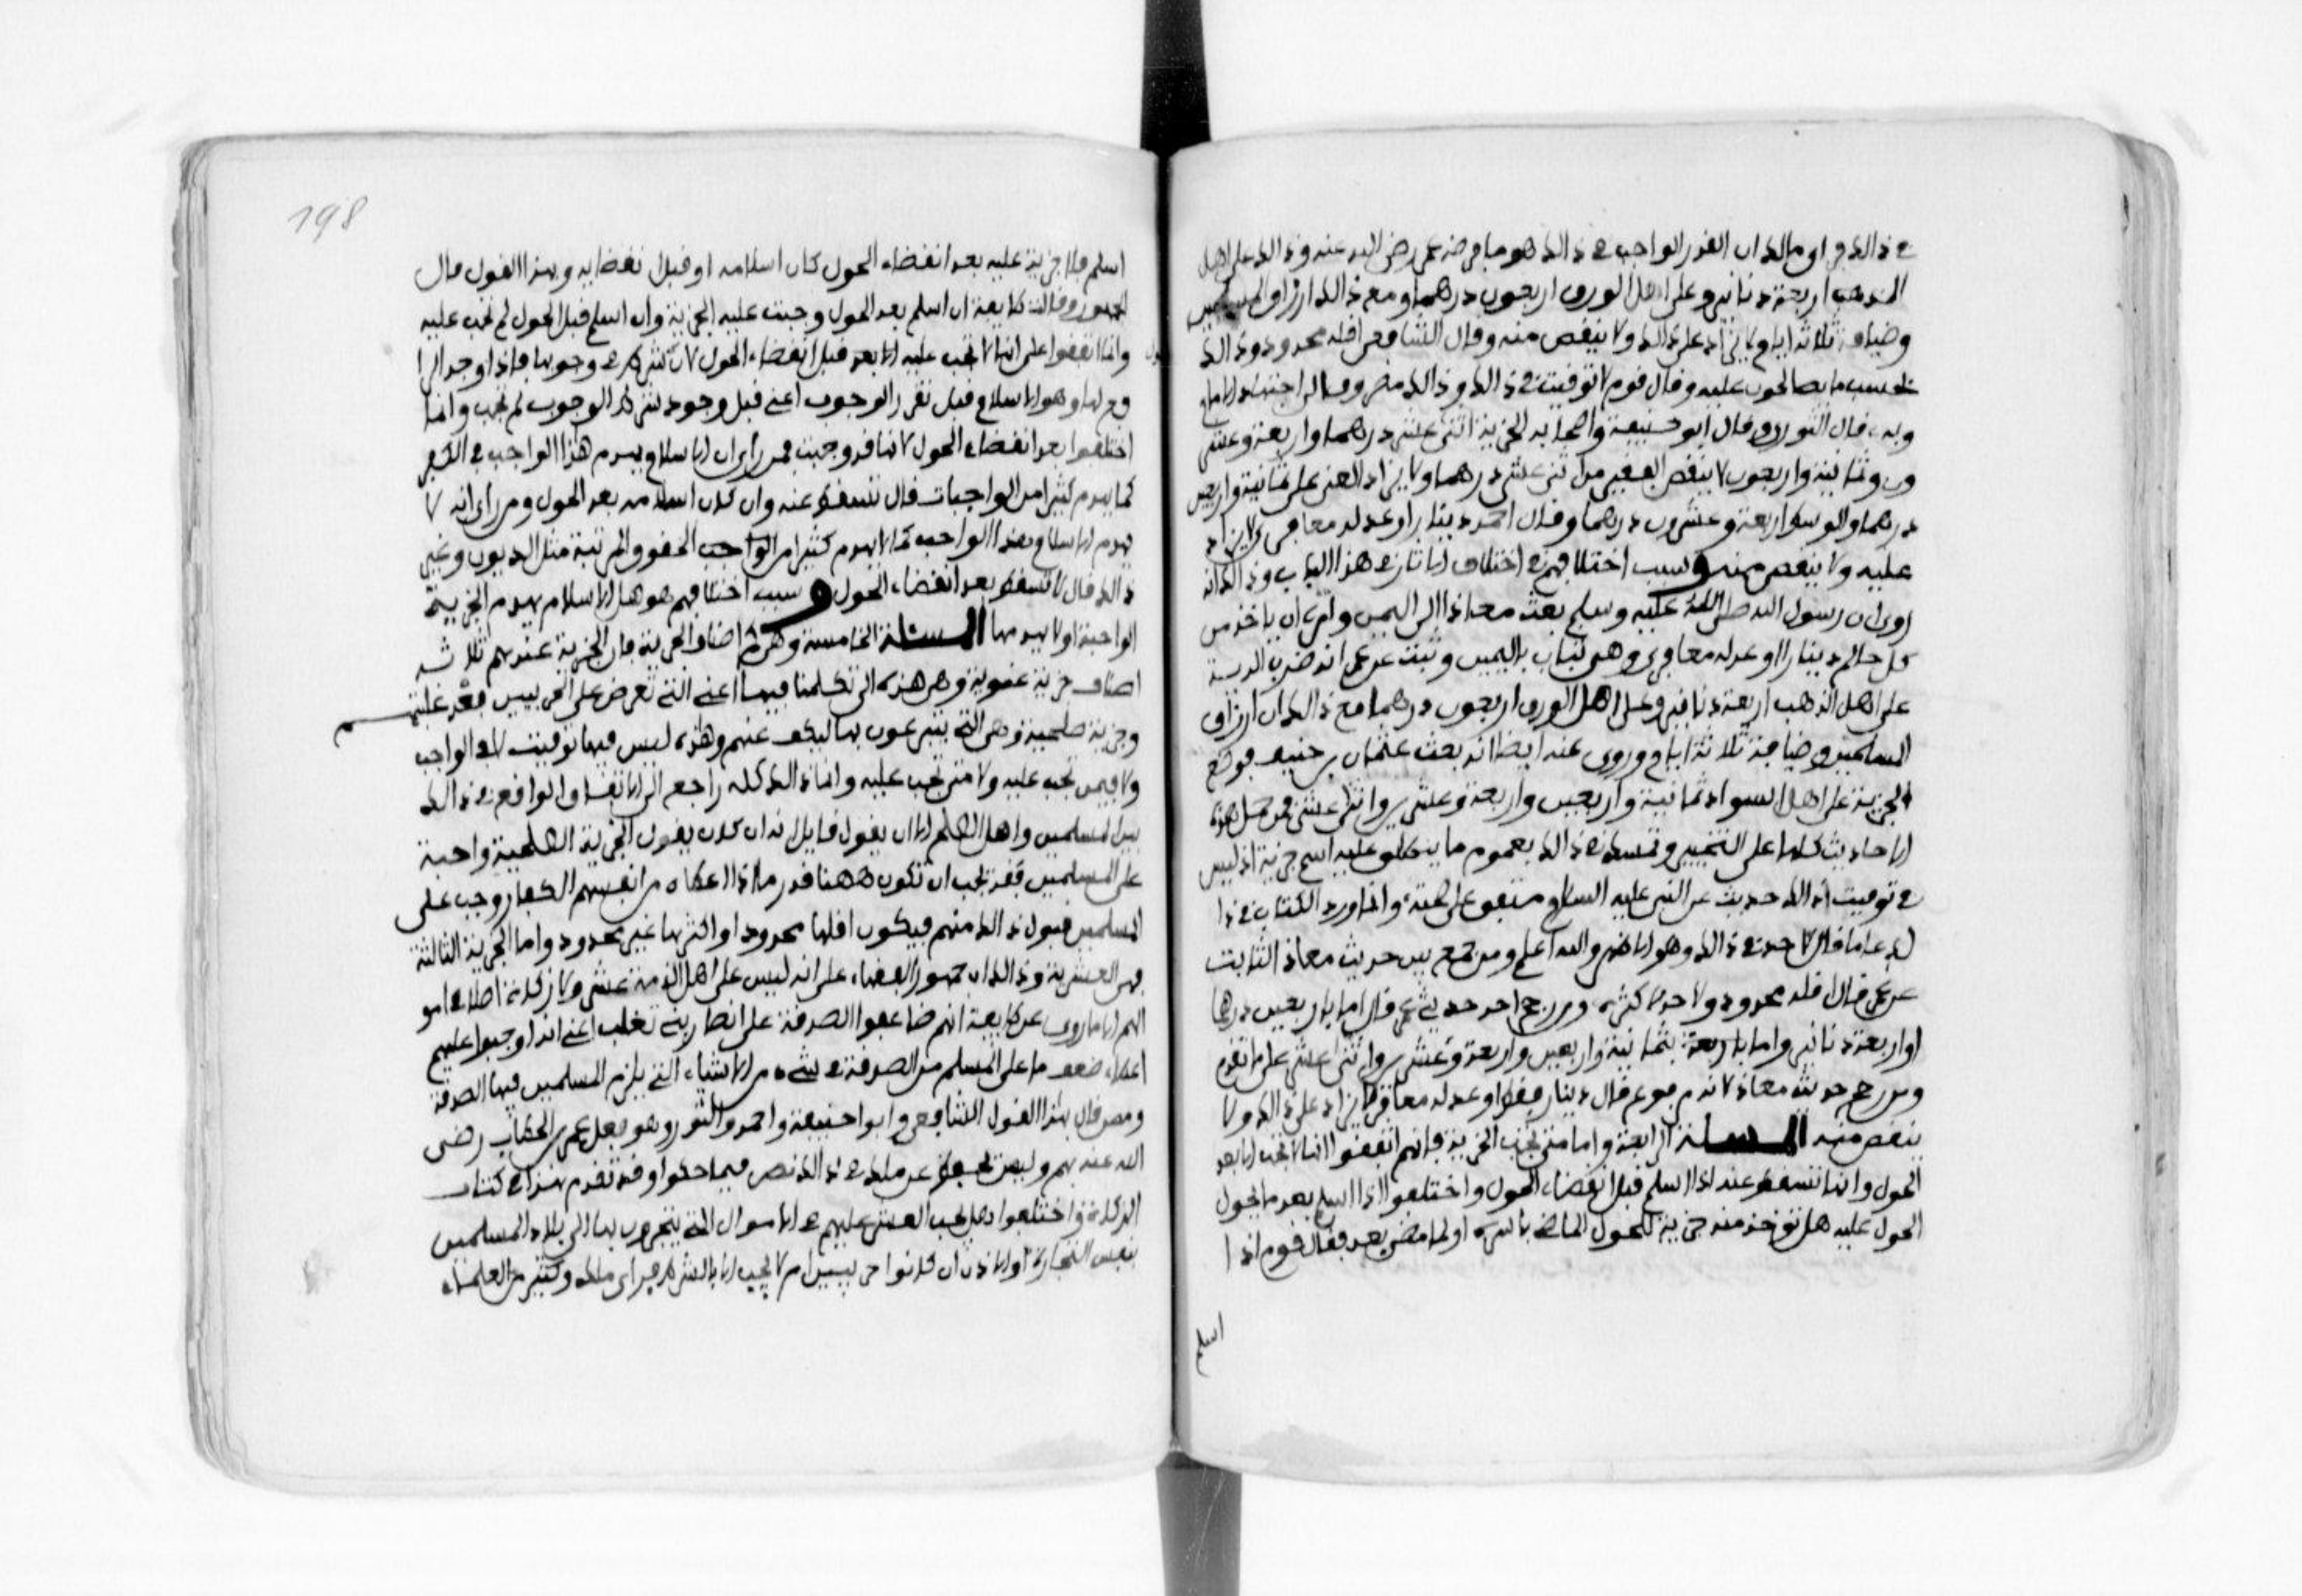 في ذالك فراى مالك ان القدر الواجب في ذالك هو ما فرضه عمر رضي الله عنه وذالك على اهل
الذهب اربعة دنانير وعلى اهل الورق اربعون درهما ومع ذالك ارزاق المسلمين
وضيافة ثلاثة ايام لا يزاد على ذالك ولا ينقص منه وقال الشافعي اقله محدود وذالك
بحسب ما يصالحون عليه وقال قوم لا توقيت في ذالك وذالك مصروف الى اجتهاد الامام
وبه قال الثوري وقال ابو حنيفة واصحابه الجزية اثنى عشر درهما واربعة وعشـ
رون وثمانية واربعون لا ينقص الفقير من اثنى عشر درهما ولا يزاد الغني على ثمانية واربعين
درهما والوسط اربعة وعشرون درهما وقال احمد دينارا وعدله معافري لا يزاد
عليه ولا ينقص منه وسبب اختلافهم في اختلاف الاثار في هذا الباب وذالك انه
روى ان رسول الله صلى الله عليه وسلم بعث معاذا الى اليمن وامره ان ياخذ من
كل حالم دينارا او عدله معافري وهي ثياب باليمن وثبت عن عمر انه ضرب الجزية
على اهل الذهب اربعة دنانير وعلى اهل الورق اربعون درهما مع ذالك ان ارزاق
المسلمين وضيافة ثلاثة ايام وروى عنه ايضا انه بعث عثمان بن حنيف فوضع
الجزية على اهل السواد ثمانية واربعين واربعة وعشرين واثنى عشر فمن حمل هذه
الاحاديث كلها على التخيير وتمسك في ذالك بعموم ما ينطلق عليه اسم جزية اذ ليس
في توقيت ذالك حديث عن النبي عليه السلام متفق على صحته وانما ورد الكتاب في ذا
لك عاما قال لا حد في ذالك وهو الاظهر والله اعلم ومن جمع بين حديث معاذ الثابت
عن عمر قال اقله محدود ولا حد لاكثره ومن رجح احد حديثي عمر قال اما باربعين درهما
او اربعة دنانير واما باربعة بثمانية واربعين واربعة وعشرين واثنى عشر على ما تقدم
ومن رجح حديث معاذ لانه مرفوع قال دينار فقط او عدله معافر لا يزاد على ذالك ولا
ينقص منه المسئلة الرابعة واما متى تجب الجزية فانهم اتفقوا انها لا تجب الا بعد
الحول وانها تسقط عنه اذا اسلم قبل انقضاء الحول واختلفوا اذا اسلم بعد ما يحول
الحول عليه هل تؤخذ منه جزية للحول الماضي باسره او لما مضى بعد فقال قوم اذا
اسلم
198
اسلم فلا جزية عليه بعد انقضاء الحول كان اسلامه او قبل انقضايه وبهذا القول قال
الجمهور وقالت طايفة ان اسلم بعد الحول وجبت عليه الجزية وان اسلم قبل الحول لم تجب عليه
وانما اتفقوا على انها لا تجب عليه الا بعد قبل انقضاء الحول لان شرط في وجوبها فاذا وجد الر
فع لها وهو الاسلام قبل تقرر الوجوب اعني قبل وجود شرط الوجوب لم تجب وانما
اختلفوا بعد انقضاء الحول لانها قد وجبت فمن راى ان الاسلام يهدم هذا الواجب في الكفر
كما يهدم كثيرا من الواجبات قال تسقط عنه وان كان اسلامه بعد الحول ومن راى انه لا
يهدم الاسلام هذا الواجب كما لا يهدم كثيرا من الواجب الحقوق المرتبة مثل الديون وغير
ذالك قال لا تسقط بعد انقضاء الحول وسبب اختلافهم هو هل الاسلام يهدم الجزية
الواجبة او لا يهدمها المسئلة الخامسة وهي كم اصناف الجزية فان الجزية عندهم ثلاثة
اصناف جزية عنوية وهي هذه التي تكلمنا فيها اعني التي تعرض على الحربيين بعد غلبتهم
وجزية صلحية وهي التي يتبرعون بها ليكف عنهم وهذه ليس فيها توقيت لا في الواجب
ولا فيمن تجب عليه ولا متى تجب عليه وانما ذالك كله راجع الى الاتفاق الواقع في ذالك
بين المسلمين واهل الصلح الا ان يقول قايل انه ان كان يقول الجزية الصلحية واجبة
على المسلمين فقد يجب ان تكون ههنا قدر ما اذا اعطاه من انفسهم الكفار وجب على
المسلمين قبول ذالك منهم فيكون اقلها محدود او اكثرها غير محدود واما الجزية الثالثة
فهي العشرية وذالك ان جمهور الفقهاء على انه ليس على اهل الذمة عشر ولا زكاة اصلا في امو
الهم الا ما روى عن طايفة انهم ضاعفوا الصدقة على نصارى بني تغلب اعني انهم اوجبوا عليهم
اعطاء ضعف ما على المسلم من الصدقة في شيء من الاشياء التي يلزم المسلمين فيها الصدقة
وممن قال بهذا القول الشافعي وابو حنيفة واحمد والثوري وهو فعل عمر بن الخطاب رضي
الله عنه بهم وليس يحفظ عن مالك في ذالك نص فيما حكوا وقد تقدم هذا في كتاب
الزكاة واختلفوا هل يجب العشر عليهم في الاموال التي يتجرون بها الى بلاد المسلمين
بنفس التجارة او الاذن ان كانوا حربيين ام لا يجب الا بالشرط فراى مالك وكثير من العلماء